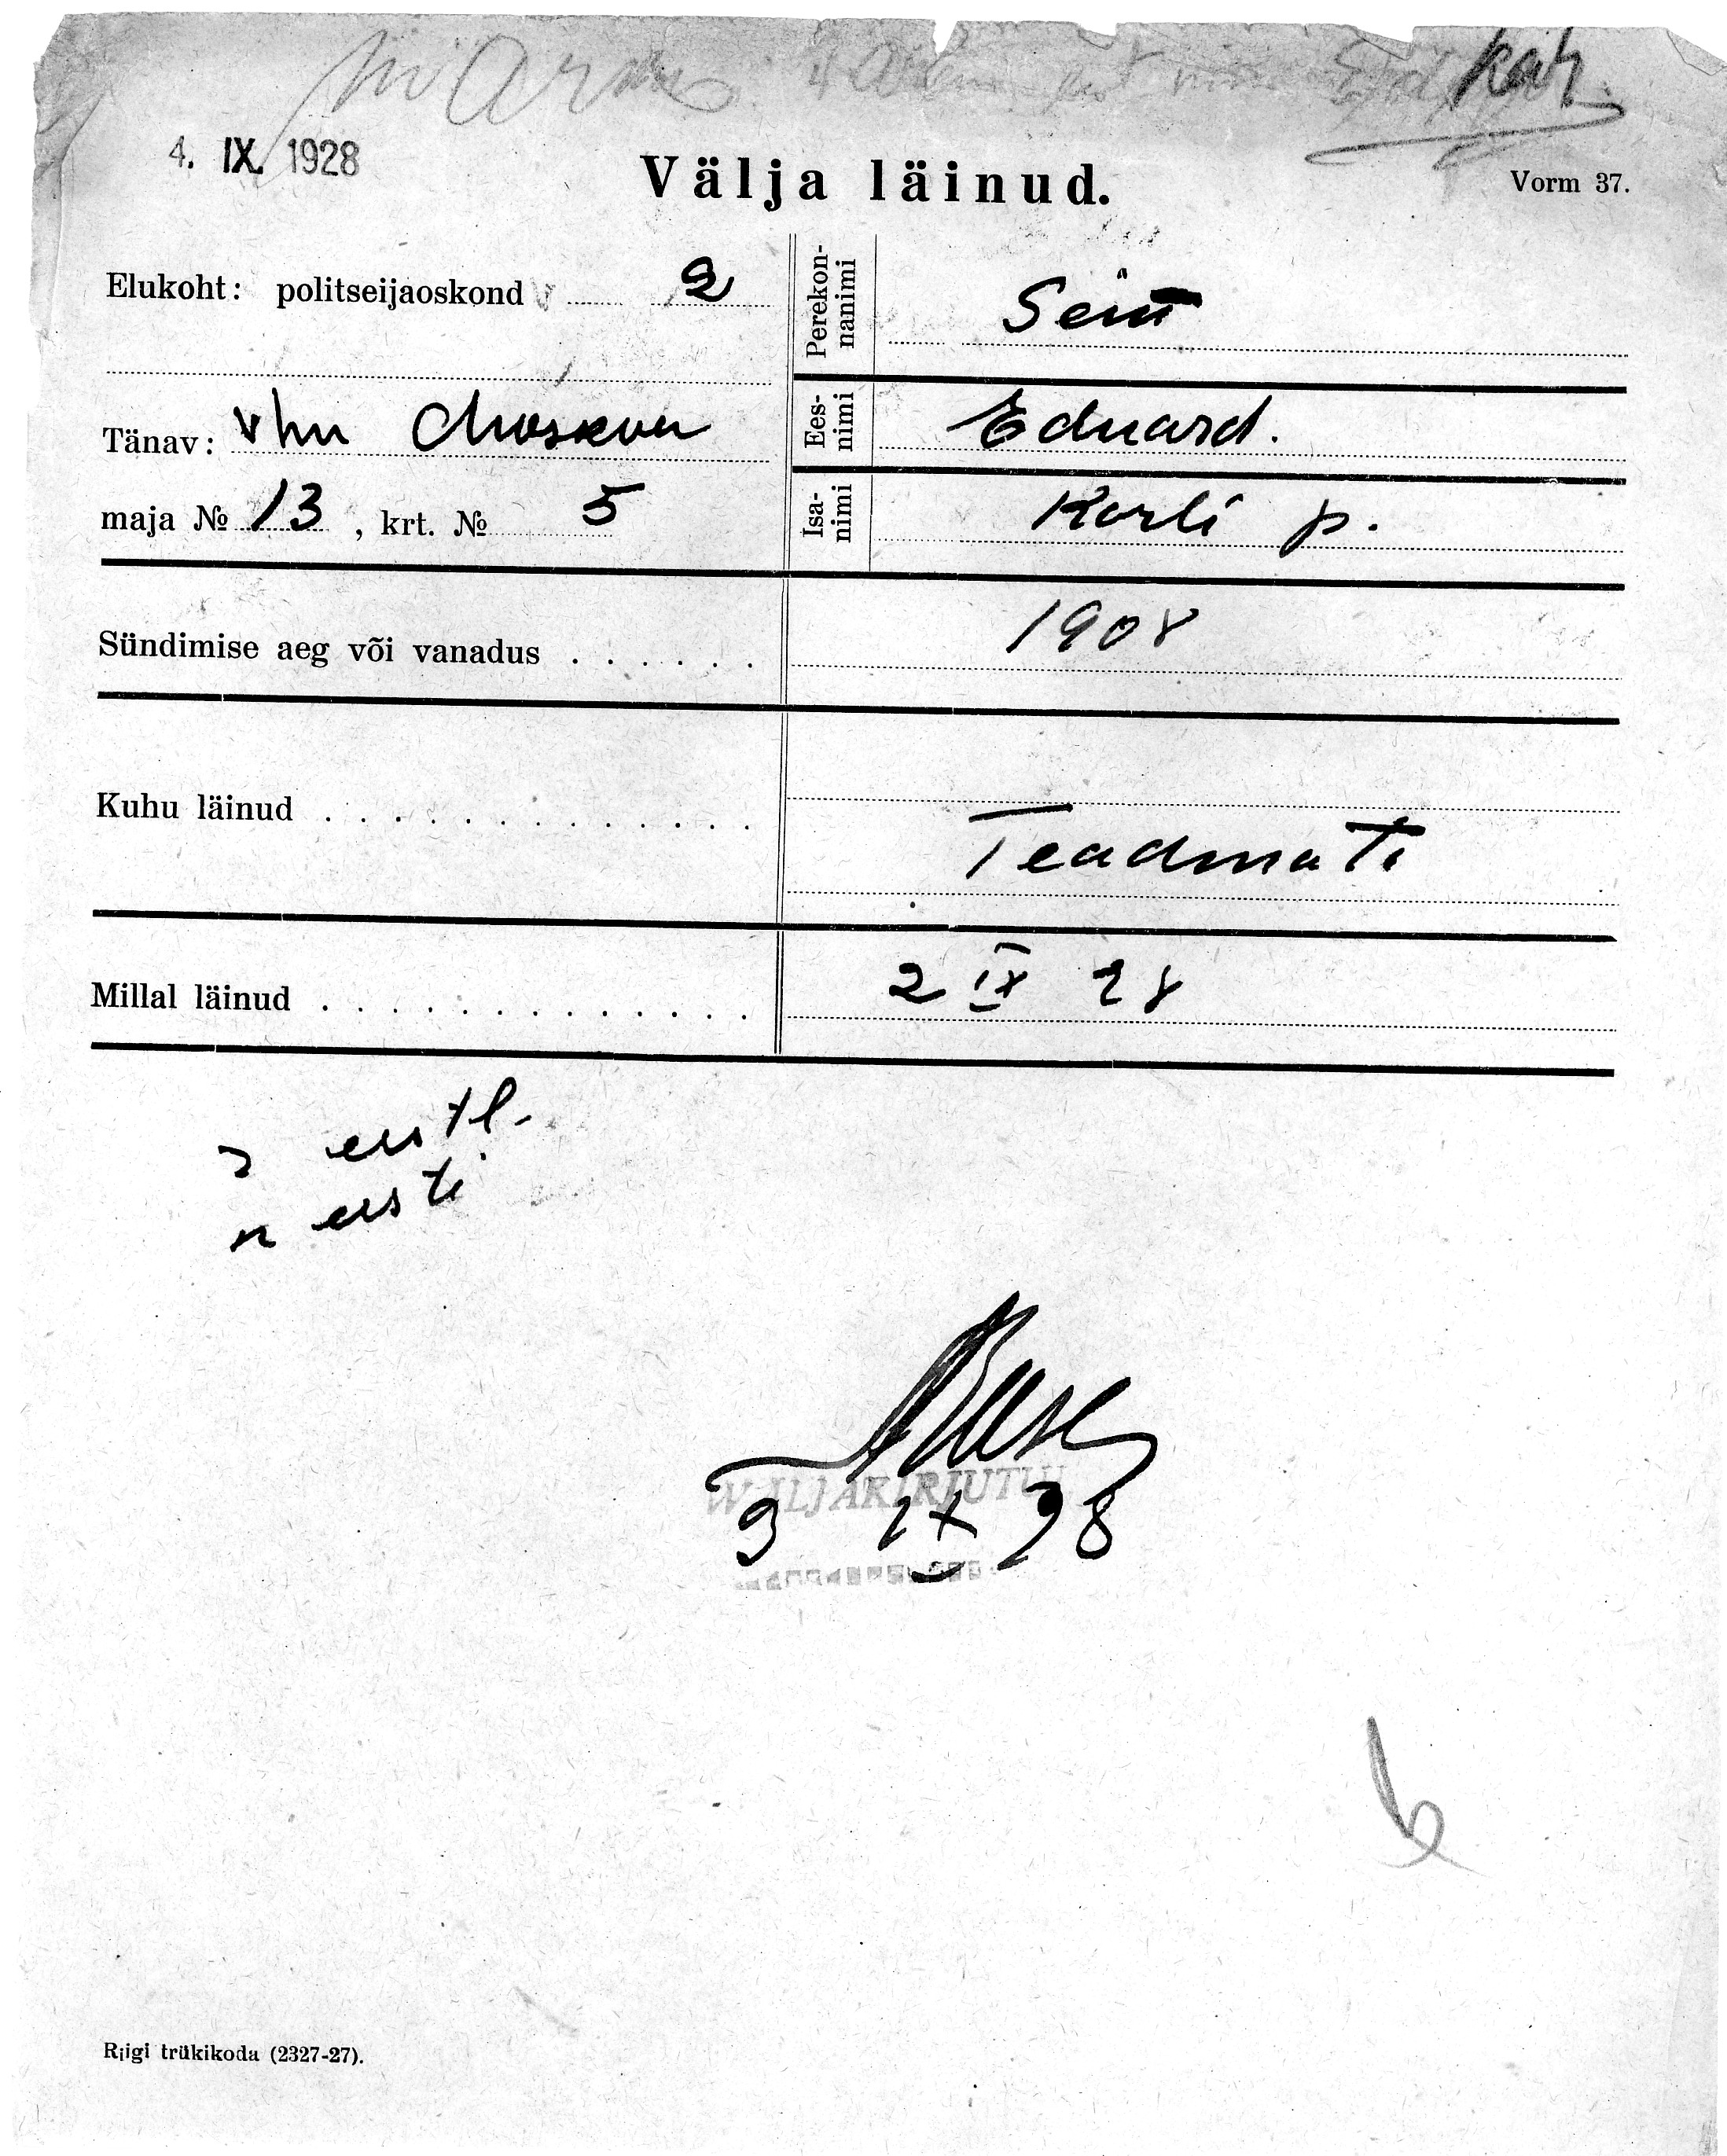 4. IX. 1928
Välja läinud.
Vorm 37.
Elukoht: politseijaoskond 2
Perekonnanimi
Tänav: vhn Moskva
Eesnimi Eduard.
maja № 13, krt. № 5
Isanimi Karli p.
Sündimise aeg või vanadus . . . . . . 1908
Kuhu läinud . . . . . . . . . . . . . Teadmata
Millal läinud . . . . . . . . . . . . . 2 IX 28
eestl.
n eesti
WÄLJAKIRJUTU
3 IX 28
Riigi trükikoda (2327-27).